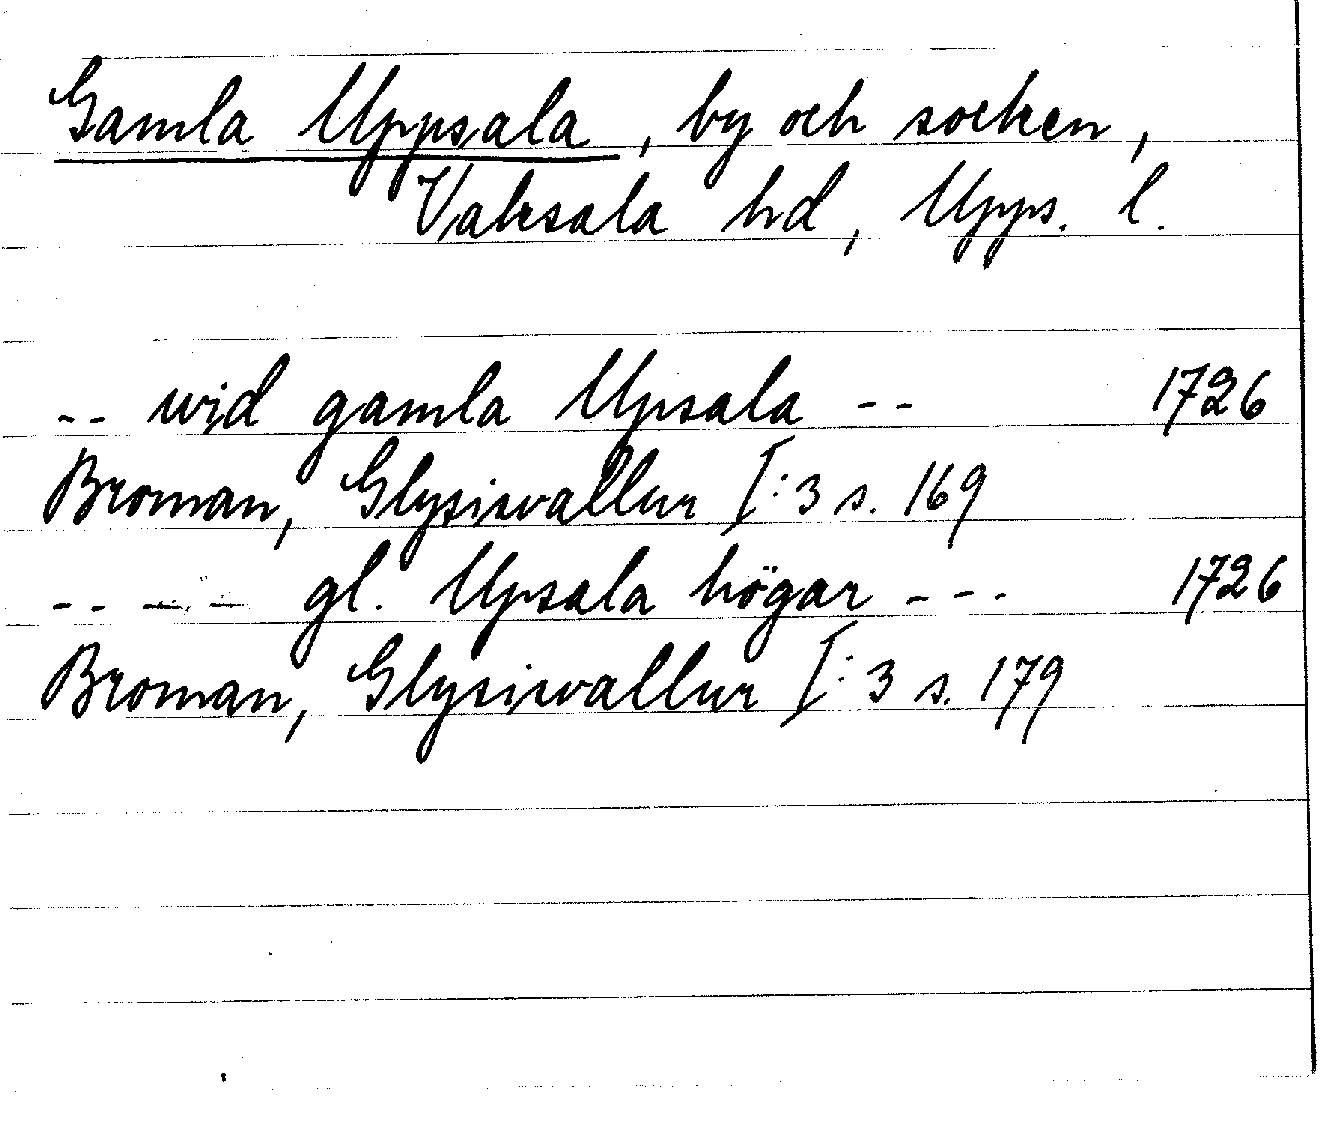 Gamla Uppsala, by och socken,
Vaksala hd, Upps. l.
-- wid gamla Upsala -- 1726
Broman, Glysisvallur I:3 s. 169
-- -- gl. Upsala högar --- 1726
Broman, Glysisvallur I:3 s. 179